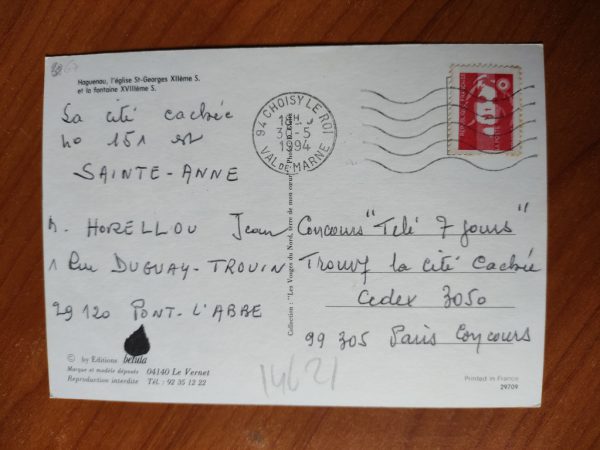 Haguenau, l'église St-Georges XIIème S.
et la fontaine XVIIIème S.
La cité cachée
no 151 est
SAINTE-ANNE
M. HORELLOU Jean
1 Rue DUGUAY-TROUIN
29120 PONT-L'ABBE
© by Editions betula
Marque et modèle déposés 04140 Le Vernet
Reproduction interdite Tél. : 92 35 12 22
Collection : "Les Vosges du Nord, terre de mon cœur"
94 CHOISY LE ROI
3 -5
1994
VAL DE MARNE
Concours "Télé 7 jours"
Trouvez la cité cachée
Cedex 3050
99 305 Paris Concours
14621
Printed in France
29709